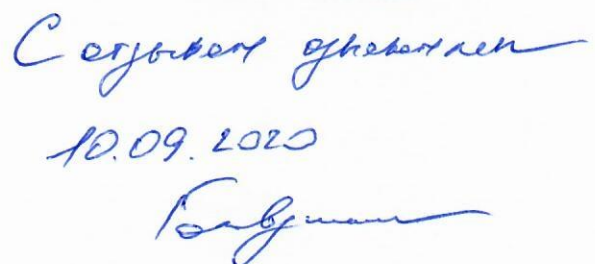 С отзывом ознакомлен
10.09.2020